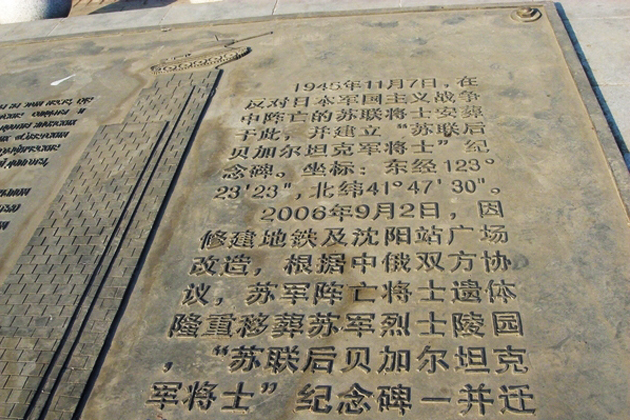 1945年11月7日，在
反对日本军国主义战争
中阵亡的苏联将士安葬
于此，并建立“苏联后
贝加尔坦克军将士”纪
念碑。坐标：东经123°
23'23"，北纬41°47'30"。
2006年9月2日，因
修建地铁及沈阳站广场
改造，根据中俄双方协
议，苏军阵亡将士遗体
隆重移葬苏军烈士陵园
，“苏联后贝加尔坦克
军将士”纪念碑一并迁